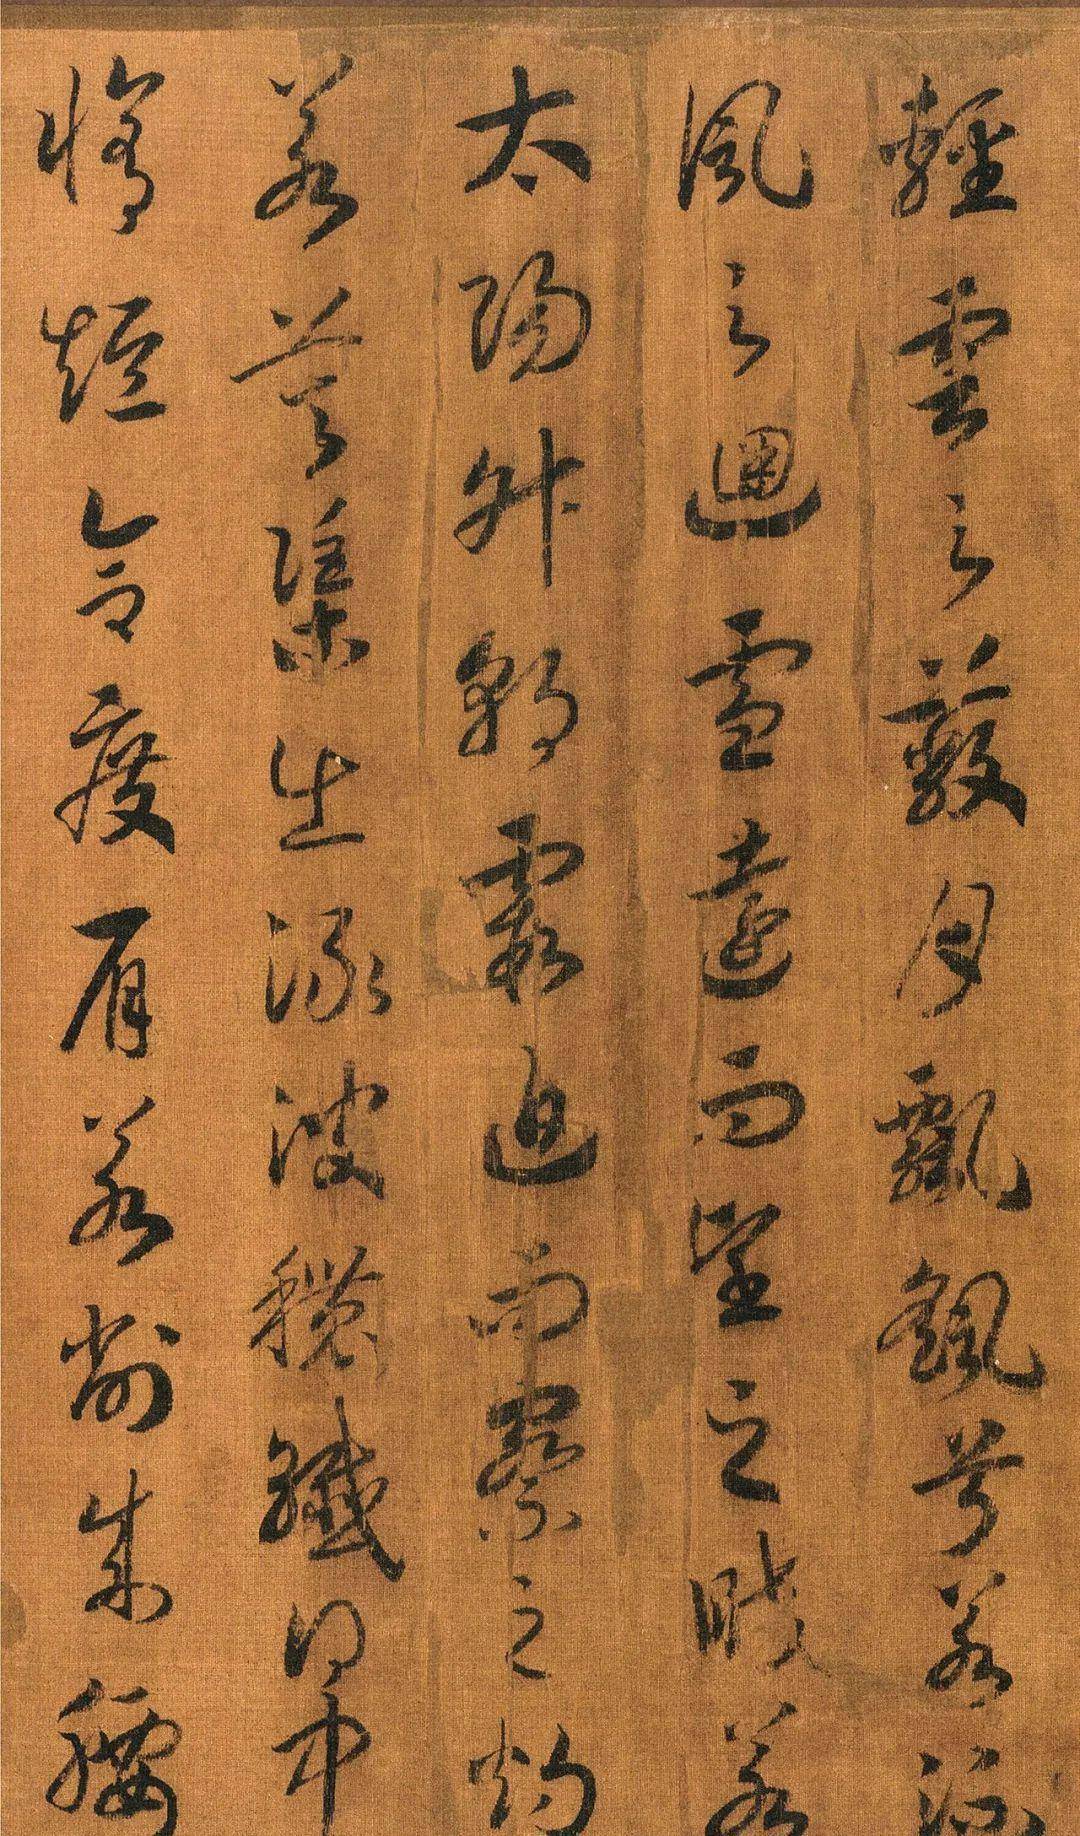 輕雲之蔽月飄飖兮若流
風之迴雪遠而望之皎若
太陽升朝霞迫而察之灼
若芙渠出淥波穠纖得中
脩短合度肩若削成腰